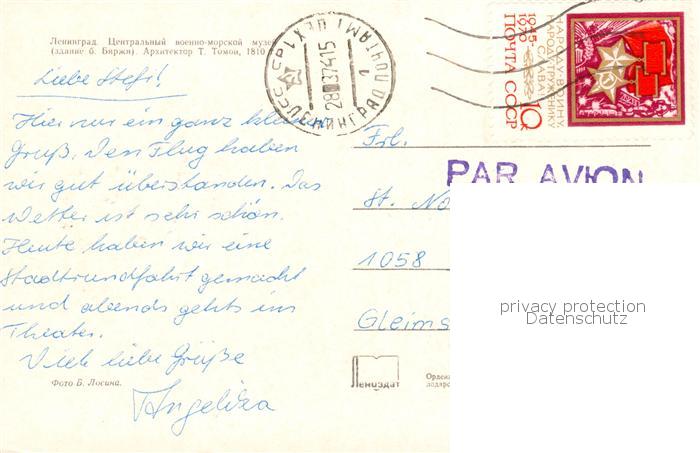 Ленинград. Центральный военно-морской музей
(здание б. Биржи). Архитектор Т. Томон, 1810
Liebe Stefi!
Hier nur ein ganz kleiner
Gruß. Den Flug haben
wir gut überstanden. Das
Wetter ist sehr schön.
Heute haben wir eine
Stadtrundfahrt gemacht
und abends gehts ins
Theater.
Viele liebe Grüße
Angelika
Фото Б. Лосина.
ЛЕНИНГРАД ПОЧТАМТ ЦЕХ 1
СССР
1
1945-
1970
ПОЧТА СССР
10к
СЛАВА!
PAR AVION
Frl.
St. No
1058
Gleims
Лениздат
Ордена
подарс
privacy protection
Datenschutz